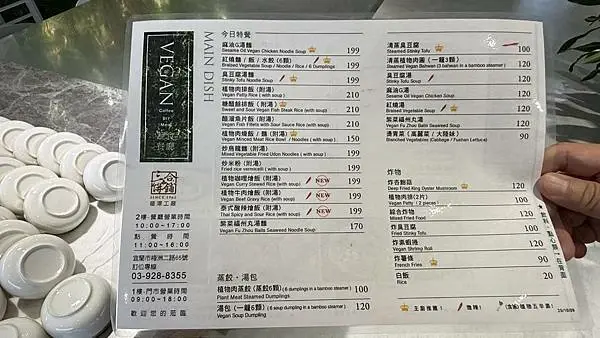 VEGAN
Coffee
BIT
Meal
餐廳
六合餅舖
SINCE 1962
蘊澤工廠
2樓-餐廳營業時間
10:00~17:00
點餐時間
11:00~16:00
宜蘭市梅洲二路65號
訂位專線
03-928-8355
1樓-門市營業時間
09:00~18:00
歡迎您的蒞臨
MAIN DISH
今日特餐
麻油G湯麵
Sesame Oil Vegan Chicken Noodle Soup 199
紅燒麵 / 飯 / 水餃 (6顆)
Braised Vegetable Soup / Noodle / Rice / 6 Dumplings 199
臭豆腐湯麵
Stinky Tofu Noodle Soup 199
植物肉排飯 (附湯)
Vegan Patty Rice ( with soup ) 210
糖醋魽排飯 (附湯)
Sweet and Sour Vegan Fish Steak Rice (with soup) 210
酷溜魚片飯 (附湯)
Vegan Fish Fillets with Sour Sauce Rice (with soup) 210
植物肉燥飯 / 麵 (附湯)
Vegan Minced Meat Rice Bowl / Noodles ( with soup) 150
炒烏龍麵 (附湯)
Mixed Vegetable Fried Udon Noodles ( with soup) 199
炒米粉 (附湯)
Fried rice vermicelli ( with soup) 199
植物咖哩燴飯 (附湯) NEW
Vegan Curry Stewed Rice (with soup) 199
植物牛肉燴飯 (附湯) NEW
Vegan Beef Gravy Rice (with soup) 199
泰式酸辣燴飯 (附湯) NEW
Thai Spicy and Sour Rice ( with soup) 199
紫菜福州丸湯麵
Vegan Fu Zhou Balls Seaweed Noodle Soup 170
蒸餃、湯包
植物肉蒸餃 (蒸餃6顆) ( 6 dumplings in a bamboo steamer ) 100
Plant Meat Steamed Dumplings
湯包 (一籠6顆) ( 6 soup dumpling in a bamboo steamer ) 120
Vegan Soup Dumpling
清蒸臭豆腐
Steamed Stinky Tofu 100
清蒸植物肉圓 (一籠3顆)
Steamed Vegan Bahwan (3 bahwan in a bamboo steamer) 120
臭豆腐湯
Stinky Tofu Soup 120
麻油湯G湯
Sesame Oil Vegan Chicken Soup 120
紅燒湯
Braised Vegetable Soup 120
紫菜福州丸湯
Vegan Fu Zhou Balls Seaweed Soup 90
燙青菜 (高麗菜 / 大陸妹)
Blanched Vegetables (Cabbage / Fushan Lettuce) 90
炸物
炸杏鮑菇
Deep Fried King Oyster Mushroom 120
植物肉排(2片)
Vegan Patty (2 pieces) 100
綜合炸物
Mixed Fried Food 120
炸臭豆腐
Fried Stinky Tofu 100
炸素蝦捲
Vegan Shrimp Roll 120
炸薯條
French Fries 90
白飯
Rice 20
主廚推薦!
微辣!
(含)植物五辛!
★飲料、點心類在背面